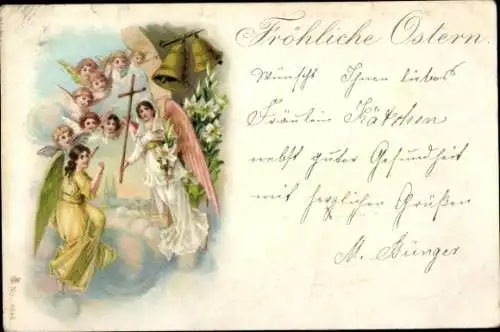 Fröhliche Ostern.
Wünscht Ihnen liebes
Fräulein Kätchen
nebst guter Gesundheit
mit herzlichen Grüßen
A. Bünger
No.